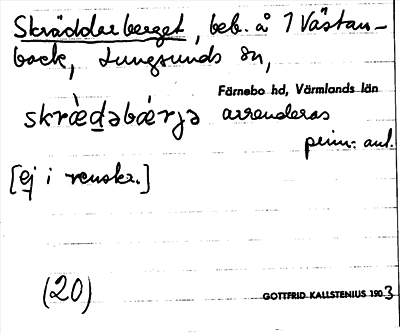 Skräddarberget, beb. å 1 Västan-
back, Lungsunds sn,
Färnebo hd, Värmlands län
skræ̀dəbǽrjə arrenderas
prim: anl.
[ej i renskr.]
(20)
GOTTFRID KALLSTENIUS 1903